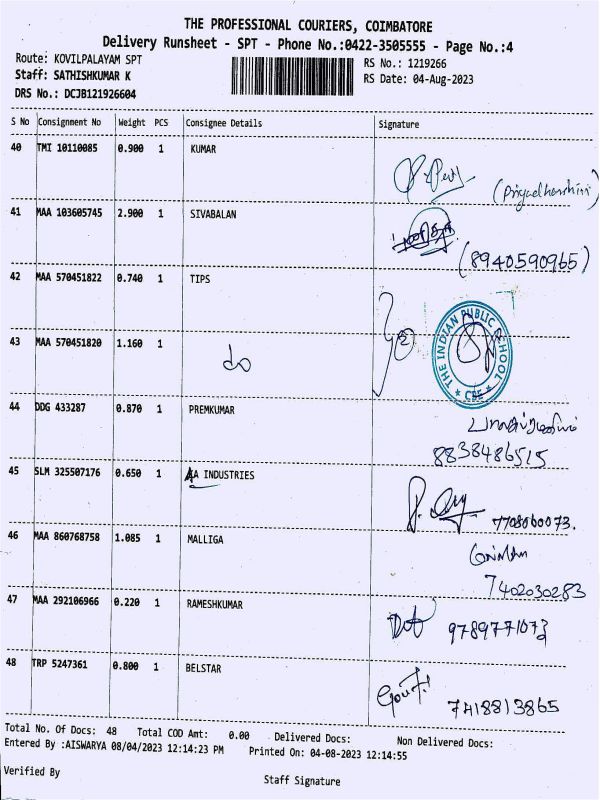 THE PROFESSIONAL COURIERS, COIMBATORE
Delivery Runsheet - SPT - Phone No.:0422-3505555 - Page No.:4
Route: KOVILPALAYAM SPT
RS No.: 1219266
Staff: SATHISHKUMAR K
RS Date: 04-Aug-2023
DRS No.: DCJB121926604
S No Consignment No Weight PCS Consignee Details Signature
40 TMI 10110085 0.900 1 KUMAR
(Priyadharshini)
41 MAA 103605745 2.900 1 SIVABALAN
(8940590965)
42 MAA 570451822 0.740 1 TIPS
2
THE INDIAN PUBLIC SCHOOL
* CBE *
43 MAA 570451820 1.160 1 do
44 DDG 433287 0.870 1 PREMKUMAR
8838486515
45 SLM 325507176 0.650 1 AA INDUSTRIES
7708060073.
46 MAA 860768758 1.085 1 MALLIGA
7402030283
47 MAA 292106966 0.220 1 RAMESHKUMAR
9789771073
48 TRP 5247361 0.800 1 BELSTAR
7418813865
Total No. Of Docs: 48 Total COD Amt: 0.00 Delivered Docs: Non Delivered Docs:
Entered By :AISWARYA 08/04/2023 12:14:23 PM Printed On: 04-08-2023 12:14:55
Verified By
Staff Signature